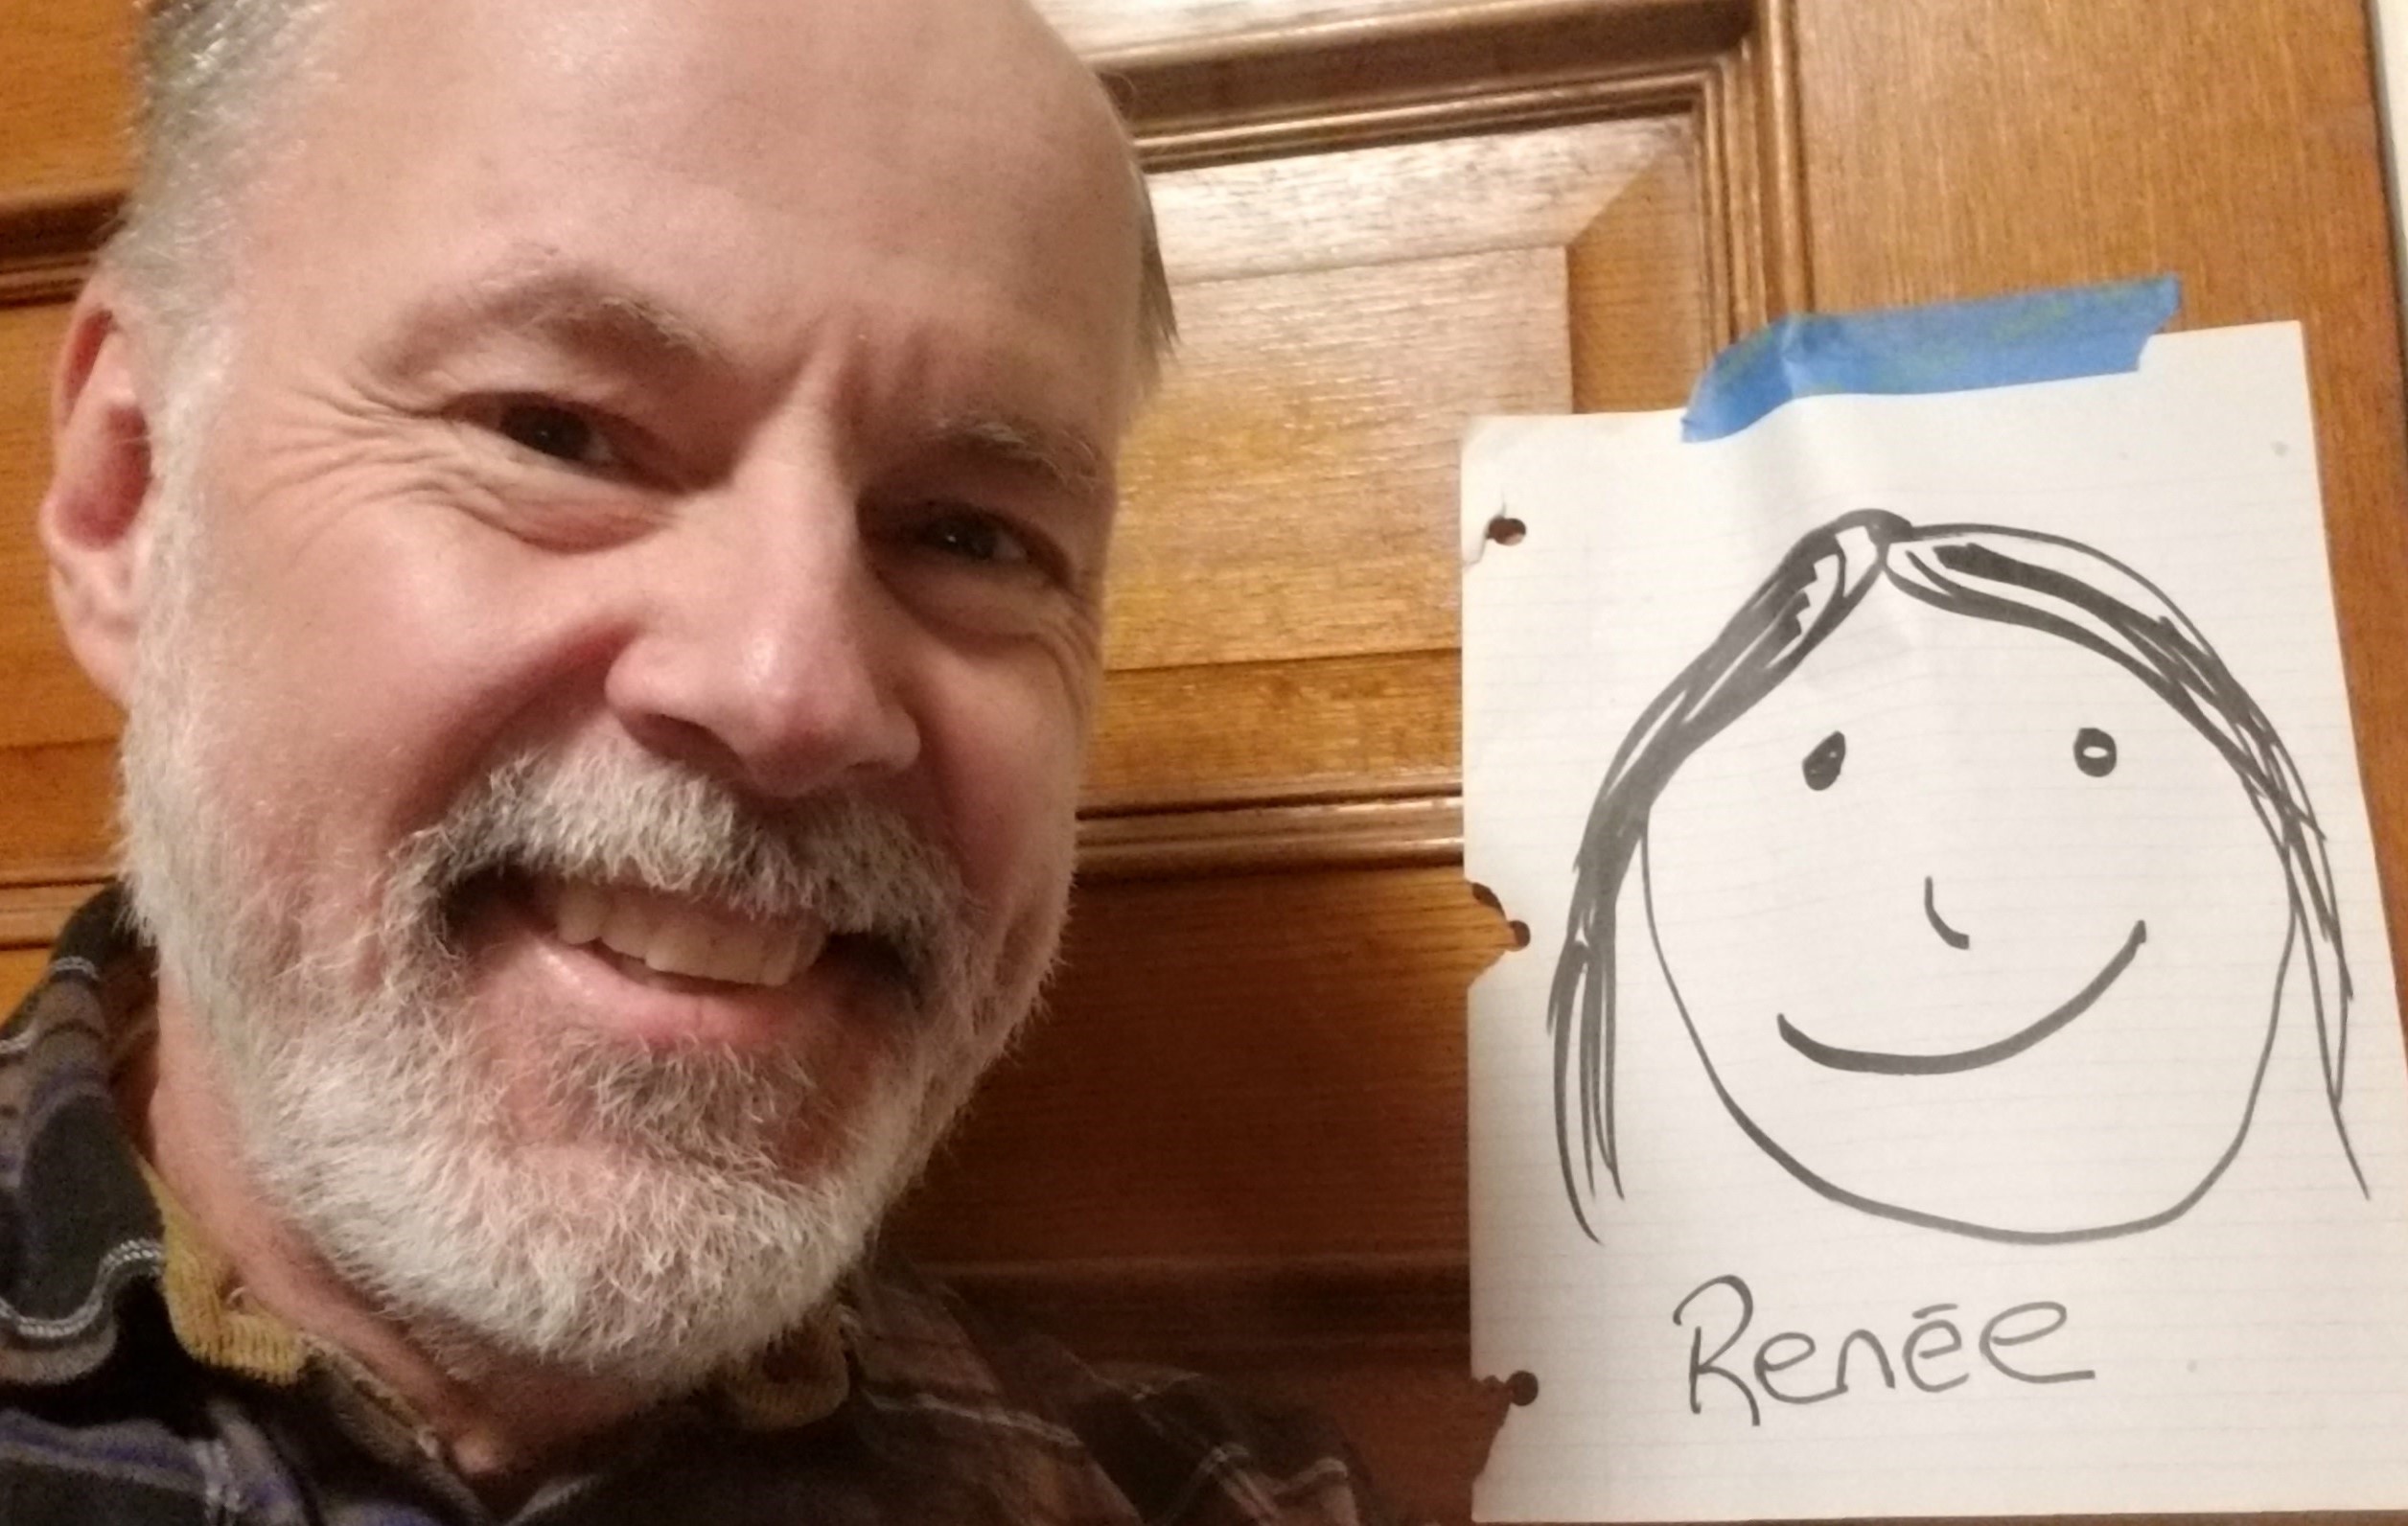 Renēe